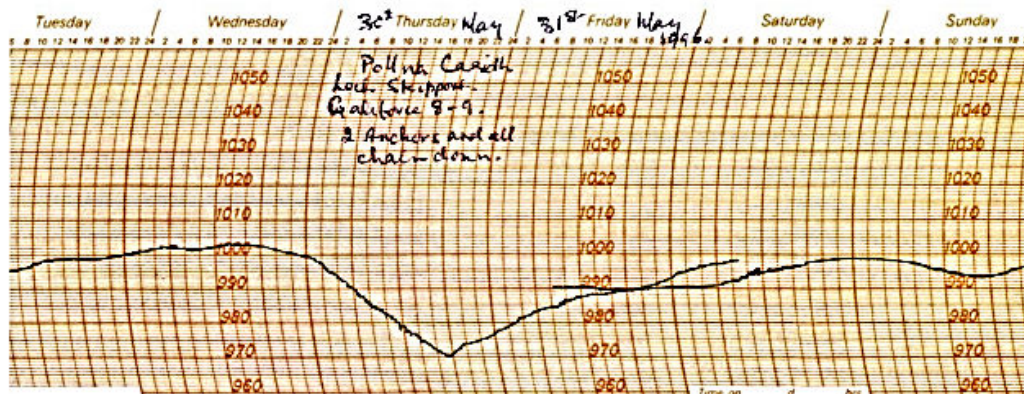 Tuesday Wednesday 30th Thursday May 31st Friday May Saturday Sunday
6 8 10 12 14 16 18 20 22 24 2 4 6 8 10 12 14 16 18 20 22 24 2 4 6 8 10 12 14 16 18 20 22 24 2 4 6 8 10 12 14 16 18 20 22 24 2 4 6 8 10 12 14 16 18 20 22 24 2 4 6 8 10 12 14 16
Poll na
Loch Skipport.
Galeforce 8-9.
2 Anchors and all
chain down.
1050 1050 1050
1040 1040 1040
1030 1030 1030
1020 1020 1020
1010 1010 1010
1000 1000 1000
990 990 990
980 980 980
970 970 970
960 960 960
Time on d hrs